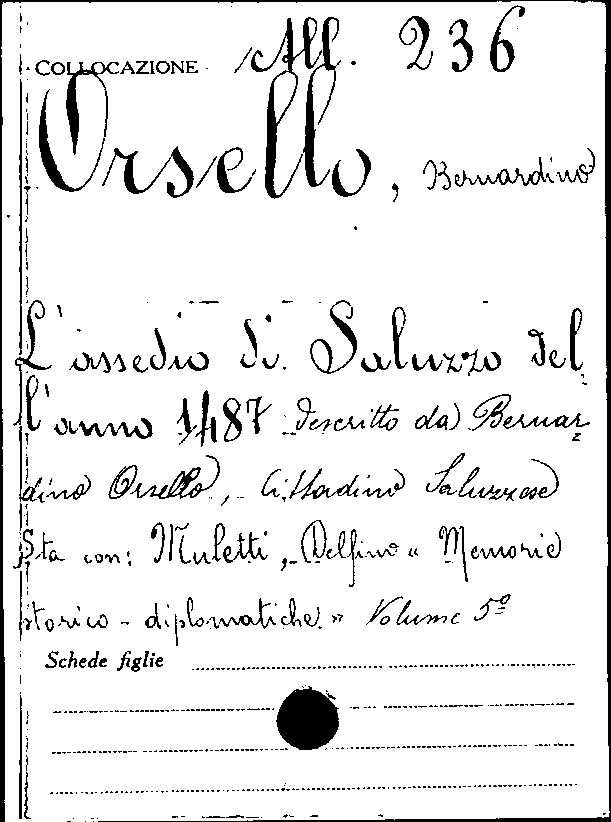 COLLOCAZIONE All. 236
Orsello, Bernardino
L'assedio di Saluzzo del
l'anno 1487 descritto da Bernar
dino Orsello, cittadino Saluzzese
Sta con: Muletti, Delfino « Memorie
storico - diplomatiche » Volume 5º
Schede figlie